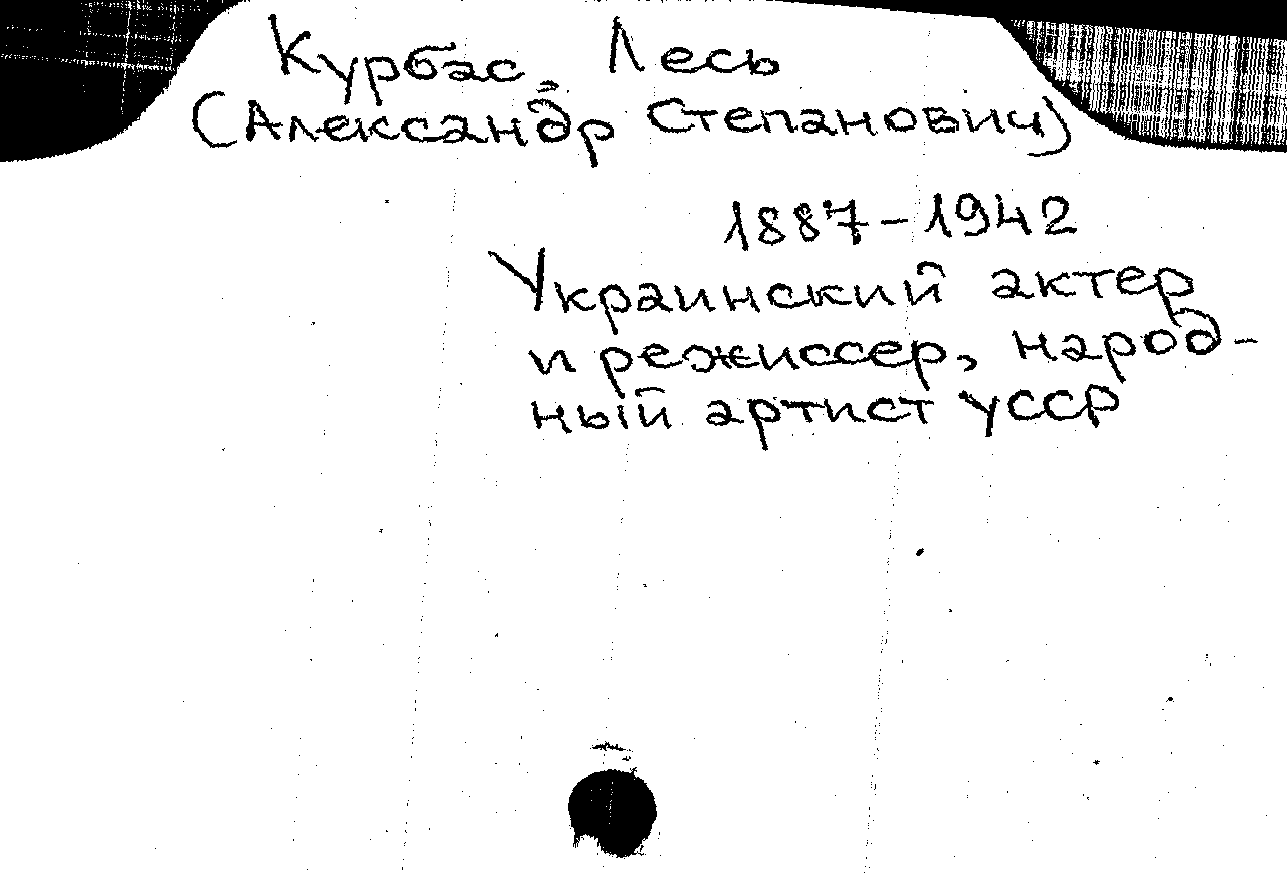 Курбас, Лесь
(Александр Степанович)
1887-1942
Украинский актер
и режиссер, народ-
ный артист УССР